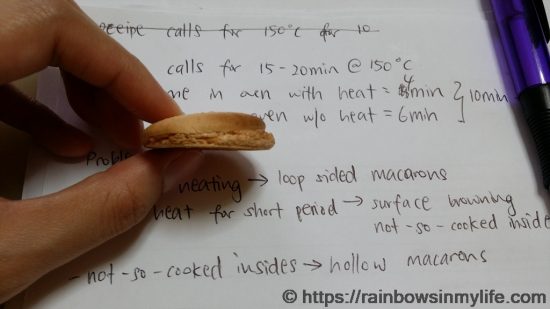 receipe calls for 150°C for 10
calls for 15-20min @ 150°C
in oven with heat = 4min } 10min
w/o heat = 6min
heating → loop sided macarons
heat for short period → surface browning
not-so-cooked inside
- not-so-cooked insides → hollow macarons
© https://rainbowsinmylife.com